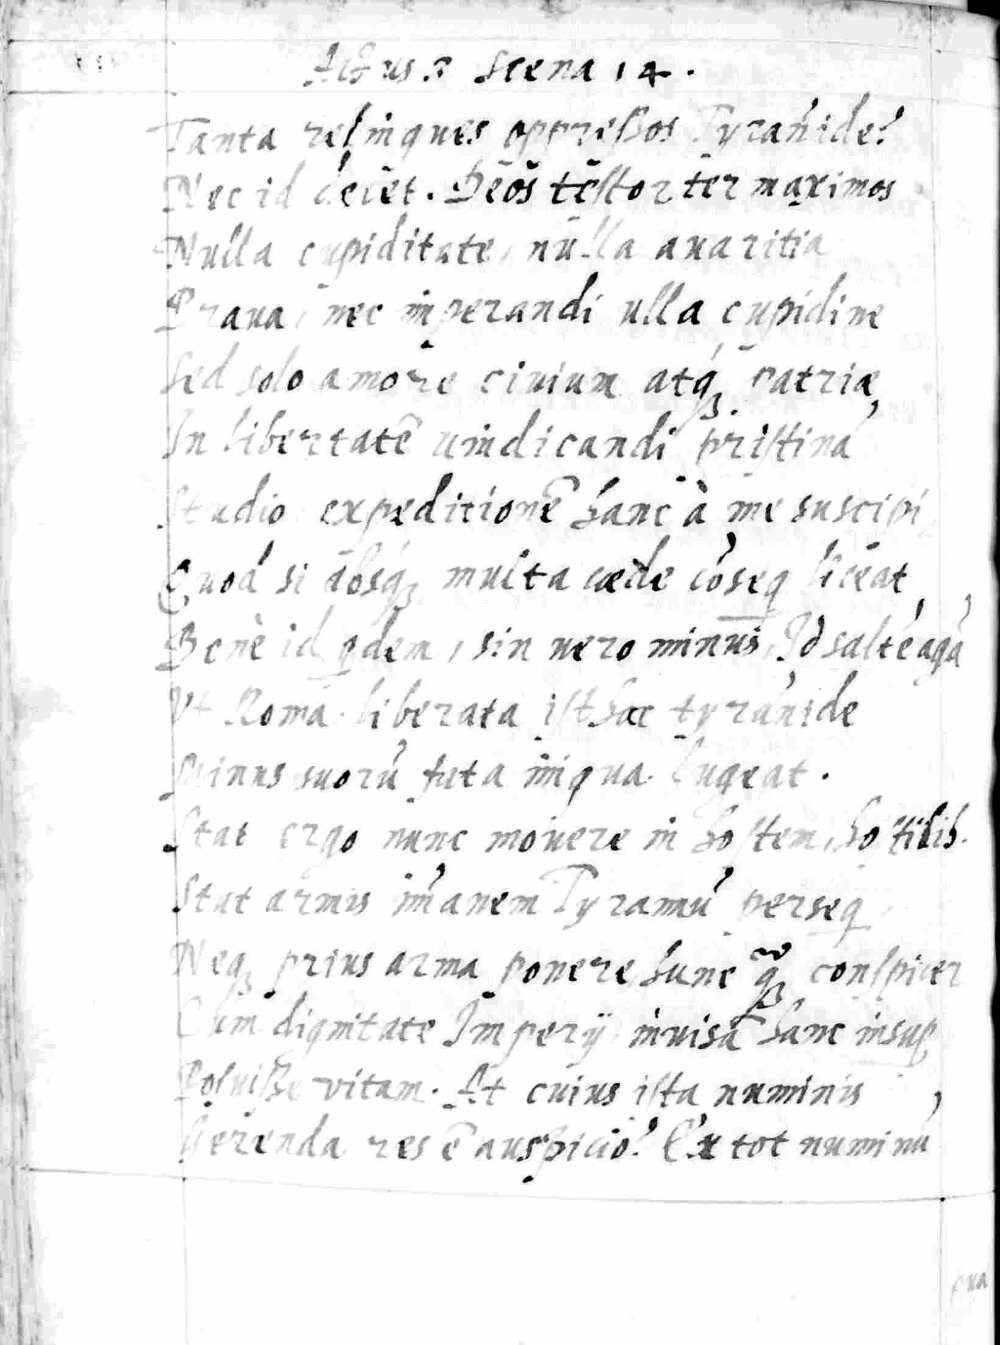 Actus 2 Scena 14.
Tanta relinques oppressos Tyrañide?
Nec id decēt. Deōs tēstor tēr maximos
Nulla cupiditate, nulla auaritia
Praua, nec imperandi ulla cupidine
Sed solo amore ciuium atq́ꝫ patriæ,
In libertatē uindicandi pristinā
Studio expeditionē hanc à me suscipi
Quod si absq́ꝫ multa cæde cōseq̄ liceat,
Benè id q̄dem, sin vero minus, Id saltē agā,
Vt Roma liberata isthac tyrañide
Minus suorū fata iniqua lugeat.
Stat ergo nunc mouere in hostem, hostilib.
Stat armis im̄anem Tyrannū perseq̄
Neqꝫ prius arma ponere hunc q̃ꝫ conspicer
Cum dignitate Imperij inuisā hanc insup̱
Posuisse vitam. At cuius ista numinis,
Gerenda res ē auspicio? Ex tot numinū
qua